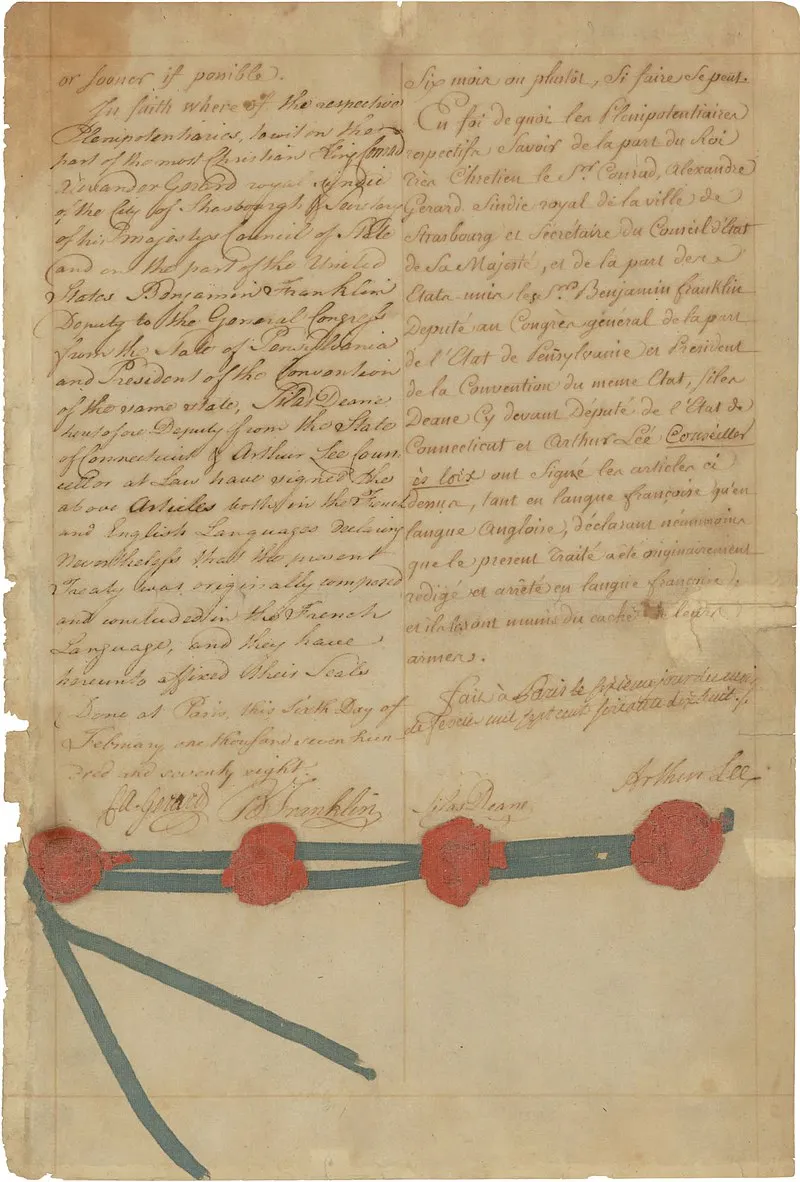 or sooner if possible.
In faith where of the respective
Plenipotentiaries, to wit on the
part of the most Christian King Conrad
Alexander Gerard royal Syndic
of the City of Strasbourgh & Secretary
of his Majestys Council of State
and on the part of the United
States Benjamin Franklin
Deputy to the General Congress
from the State of Pensylvania
and President of the Convention
of the same state, Silas Deane
heretofore Deputy from the State
of Connecticut & Arthur Lee Coun
cellor at Law have signed the
above Articles both in the French
and English Languages declaring
Nevertheless that the present
Treaty was originally composed
and concluded in the French
Language, and they have
hereunto affixed their Seals
Done at Paris, this Sixth Day of
February one thousand seven hun
dred and seventy eight.
Six mois ou plustôt, Si faire se peut.
En foi de quoi les Plenipotentiaires
respectifs Savoir de la part du Roi
très Chretien le Sr. Conrad, Alexandre
Gerard Sindic royal de la ville de
Strasbourg et Secrétaire du Conseil d'Etat
de Sa Majesté, et de la part des
Etats-unis les Srs. Benjamin franklin
Deputé au Congrès général de la part
de l'Etat de Pensylvanie et President
de la Convention du meme Etat, Silas
Deane Cy devant Député de l'Etat de
Connecticut et Arthur Lée Conseiller
ès loix ont Signé les articles ci
dessus, tant en langue françoise qu'en
langue Angloise, déclarant néanmoins
que le present Traité a été originairement
rédigé et arrêté en langue françoise,
et ils les ont munis du cachet de leurs
armes.
fait à Paris le sixieme jour du mois
de fevrier mil sept cent soixante dix huit.
CA. Gerard B Franklin Silas Deane Arthur Lee